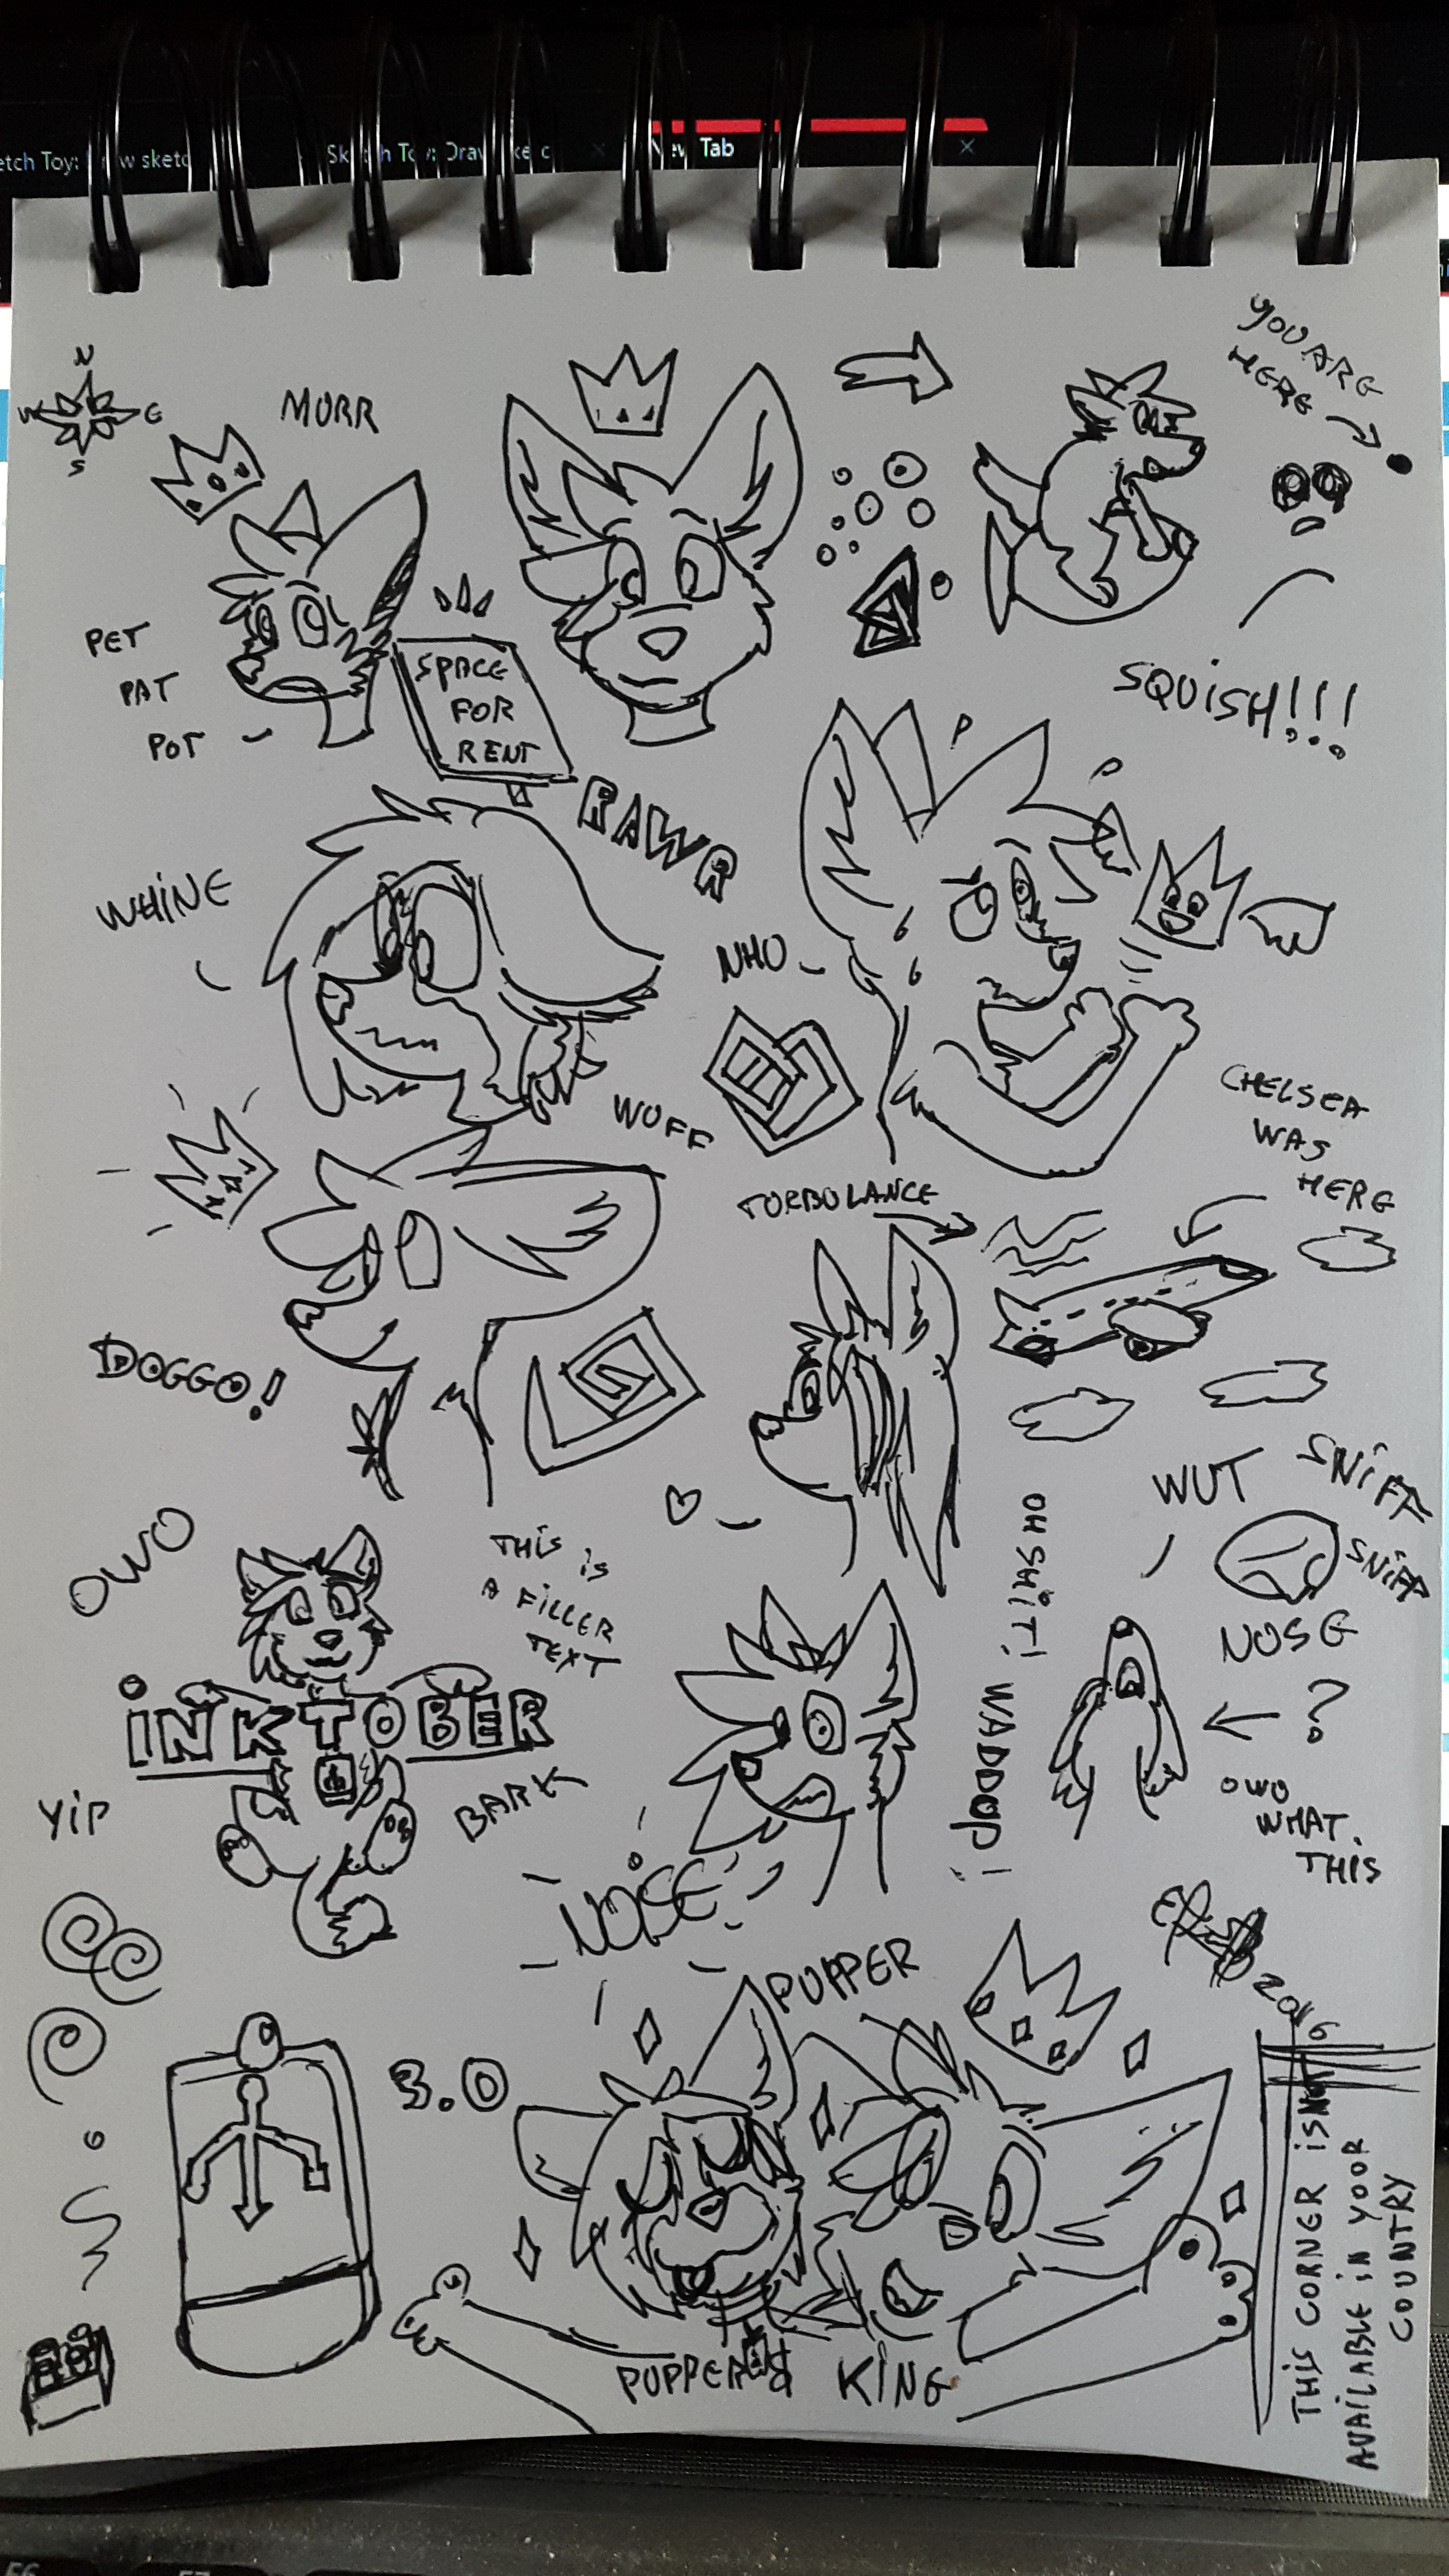 Sketch Toy: Draw sketc
New Tab
N
W E
S
MURR
YOU ARE
HERE
PET
PAT
POT
SPACE
FOR
RENT
SQUiSH!!!
RAWR
WHiNE
NHO
WUFF
CHELSEA
WAS
HERE
TURBULANCE
DOGGO!
OWO
THiS iS
A FiLLER
TEXT
OH SHiT! WADDUP!
WUT
SNiFF
SNiFF
NOSE
?
iNKTOBER
YiP
BARK
OWO
WHAT.
THiS
NOiSE
PUPPER
2016
3.0
KiNG
THiS CORNER iS NOT
AVAiLABLE iN YOUR
COUNTRY
F6
F7